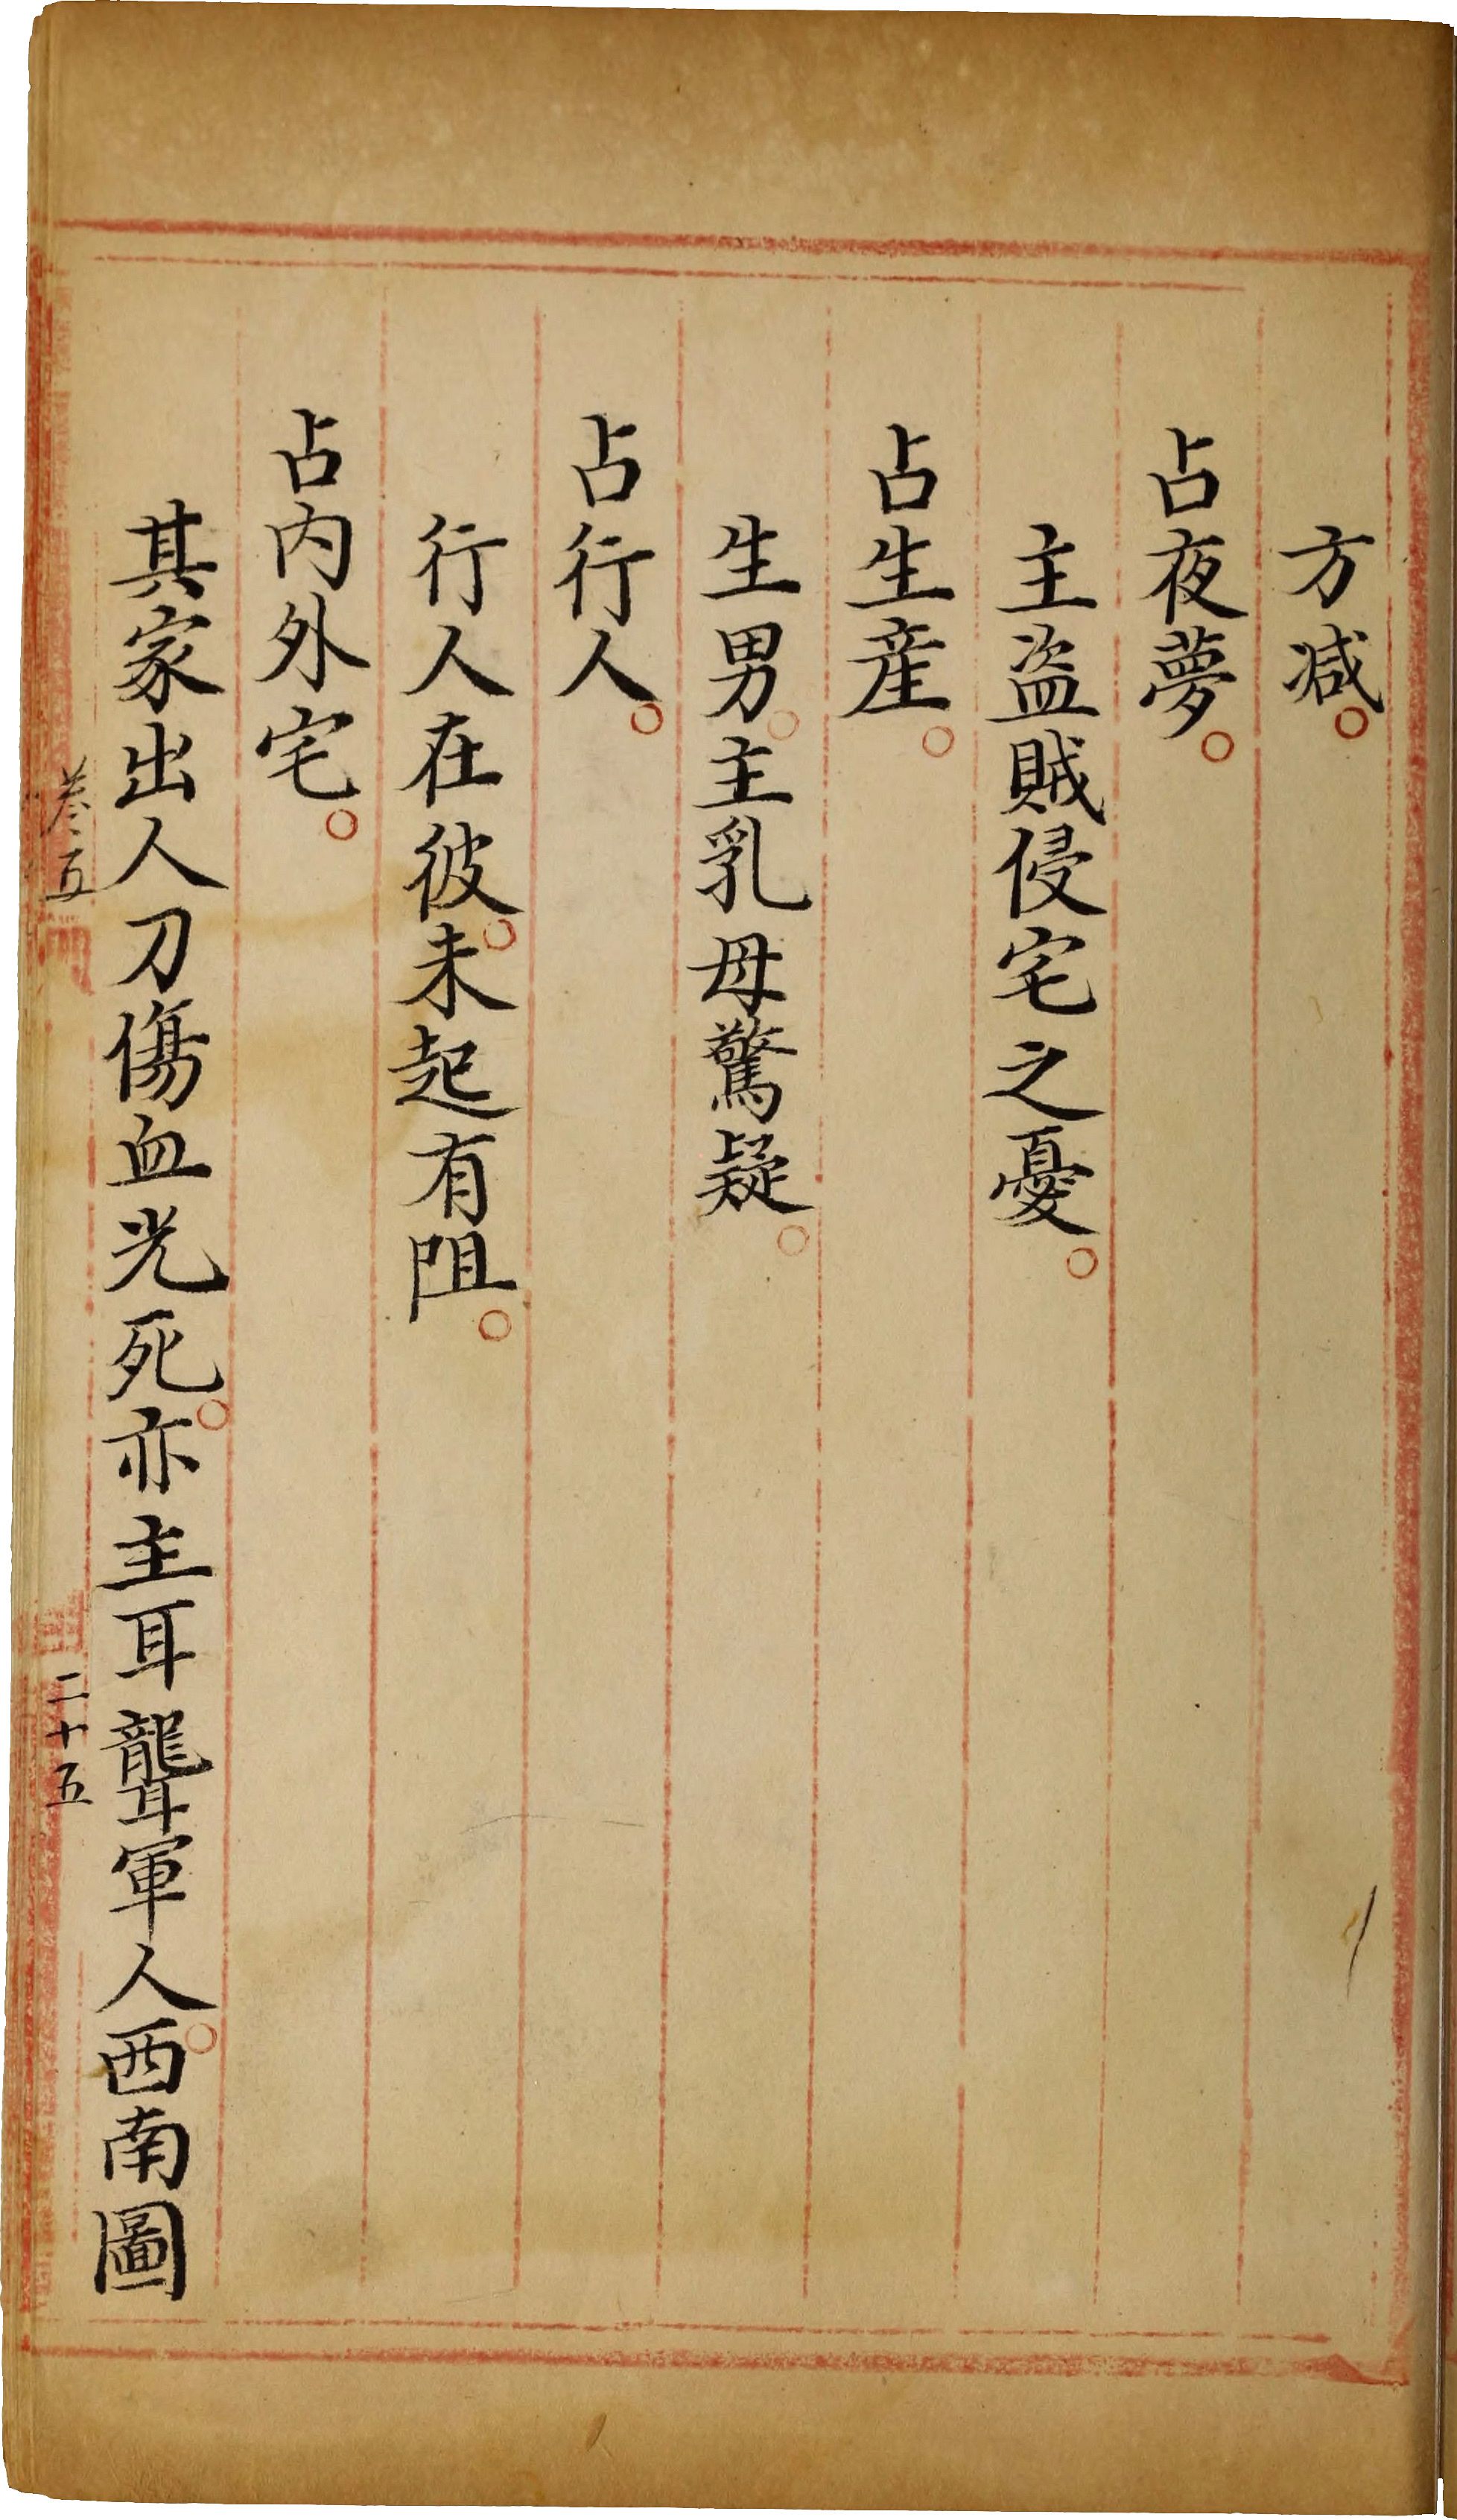 方减。
占夜夢。
主盗賊侵宅之憂。
占生産。
生男。主乳母驚疑。
占行人。
行人在彼。未起有阻。
占内外宅。
其家出人刀傷血光死。亦主耳聾軍人。西南圖
卷五
二十五